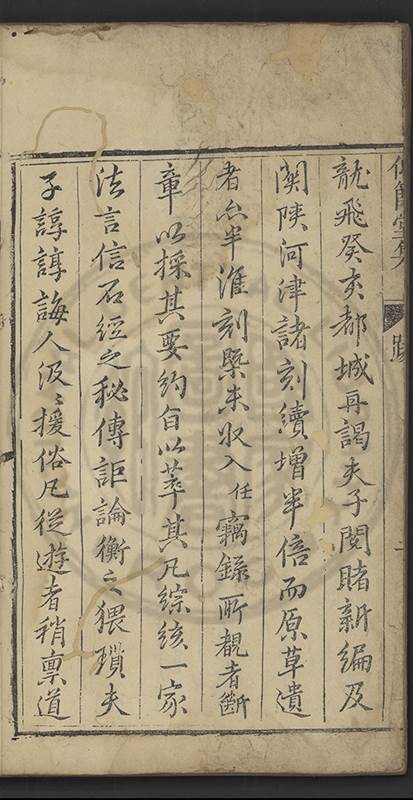 仰節堂集 跋 一
龍飛癸亥都城再謁夫子閱睹新編及
關陝河津諸刻續增半倍而原草遺
者尚半淮刻槩未收入任竊錄所覩者斷
章以採其要約旨以萃其凡綜核一家
法言信石經之秘傳詎論衡之猥瑣夫
子諄諄誨人汲〻援俗凡從遊者稍稟道